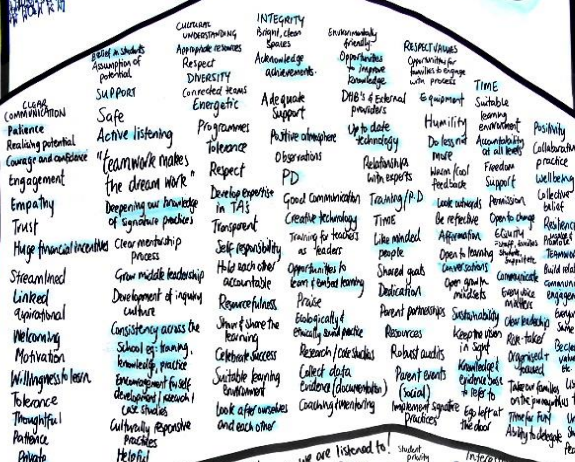 CLEAR
COMMUNICATION
Patience
Realising potential
Courage and confidence
Engagement
Empathy
Trust
Huge financial incentives
Streamlined
Linked
Aspirational
Welcoming
Motivation
Willingness to learn
Tolerance
Thoughtful
Patience
Private
Belief in students
Assumption of
potential
SUPPORT
Safe
Active listening
"teamwork makes
the dream work"
Deepening our knowledge
of signature practices
Clear mentorship
process
Grow middle leadership
Development of inquiry
culture
Consistency across the
School eg: training,
knowledge, practice
Encouragement for self
development / research /
case studies
Culturally responsive
Practices
Helpful
CULTURAL
UNDERSTANDING
Appropriate resources
Respect
DIVERSITY
Connected teams
Energetic
Programmes
Tolerance
Respect
Develop expertise
in TA's
Transparent
Self responsibility
Hold each other
accountable
Resourcefulness
Share & share the
learning
Celebrate success
Suitable learning
Environment
Look after ourselves
and each other
INTEGRITY
Bright, clean
Spaces
Acknowledge
achievements.
Adequate
Support
Positive atmosphere
Observations
PD
Good communication
Creative technology
Training for teachers
as leaders
Opportunities to
learn & embed learning
Praise
Ecologically &
ethically sound practice
Research / case studies
Collect data
Evidence (documentation)
Coaching / mentoring
Environmentally
friendly
Opportunities
to improve
knowledge
DHB's & External
providers
Up to date
technology
Relationships
with experts
Training / P.D
TIME
Like minded
people
Shared goals
Dedication
Parent partnerships
Resources
Robust audits
Parent events
(social)
Implement signature
Practices
RESPECT VALUES
Opportunities for
families to engage
with process
Equipment
Humility
Do less not
more
Warm / cool
feedback
Look outwards
Be reflective
Affirmation
Open to learning
conversations
Open growth
mindsets
Sustainability
Keep the vision
in sight
Knowledge &
evidence basis
to refer to
Ego left at
the door
TIME
Suitable
learning
environment
Accountability
at all levels
Freedom
Support
Permission
Open to change
EQUITY
Communicate
Every voice
matters
Clear leadership
Risk-taker
Organised &
focused
Take our families
on the
Time for FUN
Ability to delegate
Positivity
Collaborative
practice
Wellbeing
Collective
belief
we are listened to!
Student
priority